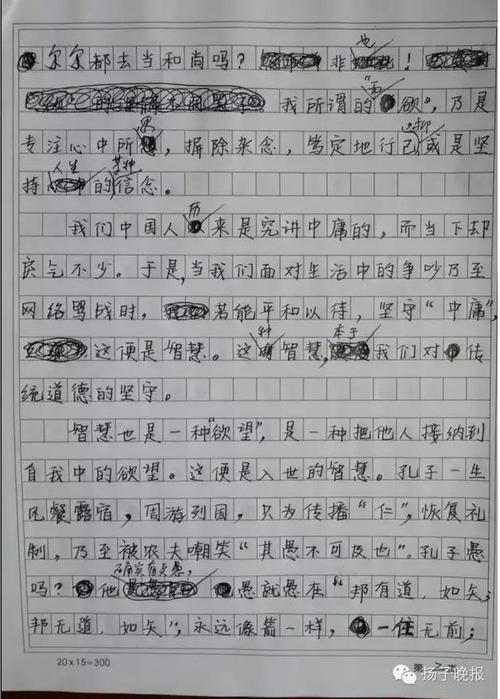 尔尔都去当和尚吗？非也！
我所谓的"不欲"，乃是
专注心中所思，摒除杂念，笃定地行己抑或是坚
持人生中的某种信念。
我们中国人历来是究讲中庸的，而当下却
戾气不少。于是，当我们面对生活中的争吵乃至
网络骂战时，若能平和以待，坚守"中庸"，
这便是智慧。这种智慧，本于我们对传
统道德的坚守。
智慧也是一种"欲望"，是一种把他人接纳到
自我中的欲望。这便是入世的智慧。孔子一生
风餐露宿，周游列国，只为传播"仁"，恢复礼
制，乃至被农夫嘲笑"其愚不可及也"。孔子愚
吗？他确实有点愚，愚就愚在"邦有道，如矢；
邦无道，如矢"，永远像箭一样，一往无前；
20×15=300
第 2 页
扬子晚报